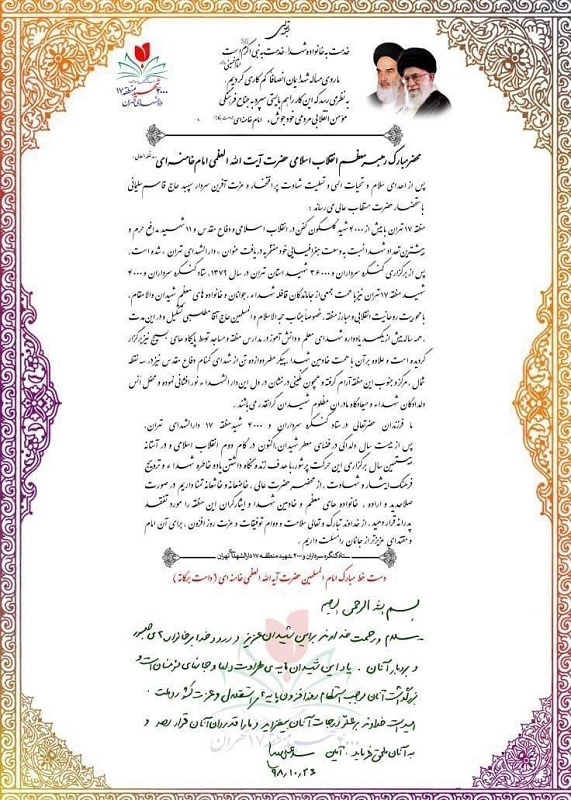 خدمت به خانواده شهدا، خدمت به نبی اکرم است
ما روی مساله شهدایمان انصافا کم کاری کردیم.
به نظر می رسد که این کار را هم بایستی سپرد به جناح فرهنگی
مؤمن انقلابی مردمی خودجوش. امام خامنه ای
۴۰۰۰
شهید منطقه ۱۷
دارالشهدای تهران
محضر مبارک رهبر معظم انقلاب اسلامی حضرت آیت الله العظمی امام خامنه ای
پس از اهدای سلام و تحیات الهی و تسلیت شهادت پر افتخار و عزت آفرین سردار سپهبد حاج قاسم سلیمانی
باستحضار حضرت مستطاب عالی می رساند :
منطقه ۱۷ تهران با بیش از ۴۰۰۰ شهید گلگون کفن در انقلاب اسلامی و دفاع مقدس و ۱۱ شهید مدافع حرم و
بیشترین تعداد شهدا نسبت به وسعت جغرافیایی خود مفتخر به دریافت عنوان ، دارالشهدای تهران ، شده است.
پس از برگزاری کنگره سرداران و ۳۶۰۰۰ شهید استان تهران در سال ۱۳۷۹، ستاد کنگره سرداران و ۴۰۰۰
شهید منطقه ۱۷ تهران نیز با همت جمعی از جاماندگان قافله شهداء، جوانان و خانواده های معظم شهیدان والامقام،
با محوریت روحانیت انقلابی و مبارز منطقه، خصوصاً جناب حجه الاسلام و المسلمین حاج آقا مطلبی تشکیل و در این مدت
، همه ساله بیش از یکصد یادواره شهدای معلم و دانش آموز در مدارس منطقه و مساجد توسط پایگاه های بسیج نیز برگزار
گردیده است و علاوه بر آن با همت خادمین شهدا، پیکر مطهر دوازده تن از شهدای گمنام دفاع مقدس نیز در سه نقطه
شمال ، مرکز و جنوب این منطقه آرام گرفته و همچون نگینی درخشان در دل این دارالشهداء نورافشانی نموده و محفل انس
دلدادگان شهداء و میعادگاه مادران مظلوم شهیدان گرانقدر می باشد.
ما فرزندان حضرتعالی در ستاد کنگره سرداران و ۴۰۰۰ شهید منطقه ۱۷ دارالشهدای تهران،
پس از بیست سال دلدادگی در فضای معطر شهیدان، اکنون در گام دوم انقلاب اسلامی و در آستانه
بیستمین سال برگزاری این حرکت پرشور، با هدف زنده نگاه داشتن یاد و خاطره شهداء و ترویج
فرهنگ ایثار و شهادت ، از محضر حضرت عالی ، خاضعانه و خاشعانه تمنا داریم در صورت
صلاحدید و اراده ، خانواده های معظم و خادمین شهدا و ایثارگران این منطقه را مورد تفقد
پدرانه قرار دهید. از خداوند تبارک و تعالی سلامت و دوام توفیقات و عزت روز افزون ، برای آن امام
و مقتدای عزیزتر از جانمان را مسئلت داریم .
ستاد کنگره سرداران و ۴۰۰۰ شهید منطقه ۱۷ دارالشهدای تهران
دست خط مبارک امام المسلمین حضرت آیه الله العظمی خامنه ای ( دامت برکاته )
بسم الله الرحمن الرحیم
سلام و رحمت خداوند بر این شهیدان عزیز و درود خدا بر خانواده های صبور
و بردبار آنان . یاد این شهیدان مایه ی طراوت دلها و جانهای مؤمنان است و
بزرگداشت آنان موجب استحکام روزافزون پایه های استقلال و عزت کشور و ملت .
امید است خداوند بر علو درجات آنان بیفزاید و ما را قدردان آنان قرار دهد و
به آنان ملحق فرماید . آمین سید علی خامنه ای
۹۸,۱۰,۲۶
۴۰۰۰ شهید منطقه ۱۷ تهران